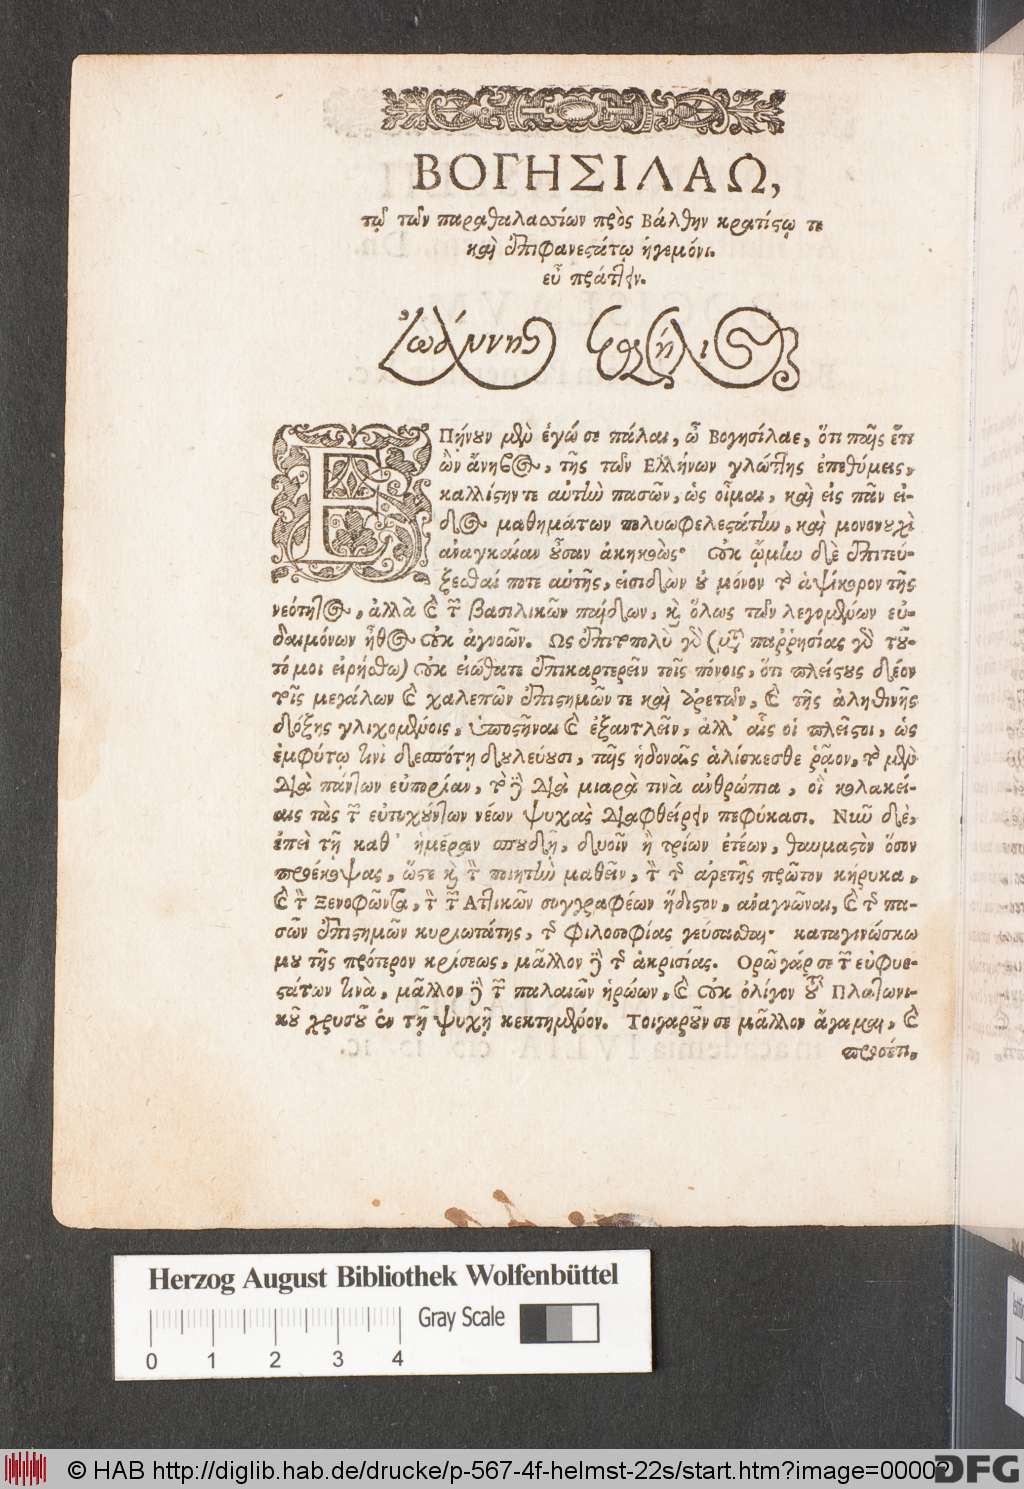 ΒΟΓΗΣΙΛΑΩ,
τῷ τῶν παραθαλασσίων πρὸς Βάλθην κρατίστῳ τε
καὶ ἐπιφανεστάτῳ ἡγεμόνι.
εὖ πράττειν.
Ἰωάννης
ΕΠήνουν μὲν ἐγώ σε πάλαι, ὦ Βογησίλαε, ὅτι παῖς ἔτι
ὢν ἄνηβος, τῆς τῶν Ελλήνων γλώττης ἐπεθύμεις,
καλλίστην τε αὐτὴν πασῶν, ὡς οἶμαι, καὶ εἰς πᾶν εἶ-
δος μαθημάτων πολυωφελεστάτην, καὶ μονονουχὶ
ἀναγκαίαν οὖσαν ἀκηκοώς· οὐκ ᾤμην δὲ ἐπιτεύ-
ξεσθαί ποτε αὐτῆς, εἰσιδὼν οὐ μόνον τὸ ἁψίκορον τῆς
νεότητος, ἀλλὰ καὶ τῶν βασιλικῶν παίδων, καὶ ὅλως τῶν λεγομένων εὐ-
δαιμόνων ἦθος οὐκ ἀγνοῶν. Ως ἐπιτοπολὺ γὰρ (μετὰ παῤῥησίας γὰρ τοῦ-
τό μοι εἰρήσθω) οὐκ εἰώθατε ἐπικαρτερεῖν τοῖς πόνοις, ὅτι πλείστους δέον
τοῖς μεγάλων καὶ χαλεπῶν ἐπιστημῶν τε καὶ ἀρετῶν, καὶ τῆς ἀληθινῆς
δόξης γλιχομένοις, ὑποστῆναι καὶ ἐξαντλεῖν, ἀλλ' αἷς οἱ πλεῖστοι, ὡς
ἐμφύτῳ τινὶ δεσπότῃ δουλεύουσι, ταῖς ἡδοναῖς ἁλίσκεσθε ῥᾷον, τὸ μὲν
διὰ πάντων εὐπορίαν, τὸ δὲ διὰ μιαρὰ τινὰ ἀνθρώπια, οἳ κολακεί-
αις τὰς τῶν εὐτυχούντων νέων ψυχὰς διαφθείρειν πεφύκασι. Νῦν δὲ,
ἐπεὶ τῇ καθ' ἡμέραν σπουδῇ, δυοῖν ἢ τρίων ἐτέων, θαυμαστὸν ὅσον
προέκοψας, ὥστε καὶ τὸν ποιητὴν μαθεῖν, τὸν τῆς ἀρετῆς πρῶτον κήρυκα,
καὶ τὸν Ξενοφῶντα, τὸν τῶν Αττικῶν συγγραφέων ἥδιστον, ἀναγνῶναι, καὶ τῆς πα-
σῶν ἐπιστημῶν κυριωτάτης, τῆς φιλοσοφίας γεύσασθαι· καταγινώσκω
μου τῆς πρότερον κρίσεως, μᾶλλον δὲ τῆς ἀκρισίας. Ορῶ γάρ σε τῶν εὐφυε-
στάτων τινὰ, μᾶλλον δὲ τῶν παλαιῶν ἡρώων, καὶ οὐκ ὀλίγον τοῦ Πλατωνι-
κοῦ χρυσοῦ ἐν τῇ ψυχῇ κεκτημένον. Τοιγαροῦν σε μᾶλλον ἄγαμαι, καὶ
προσέτι,
Herzog August Bibliothek Wolfenbüttel
Gray Scale
0 1 2 3 4
© HAB http://diglib.hab.de/drucke/p-567-4f-helmst-22s/start.htm?image=00002
DFG